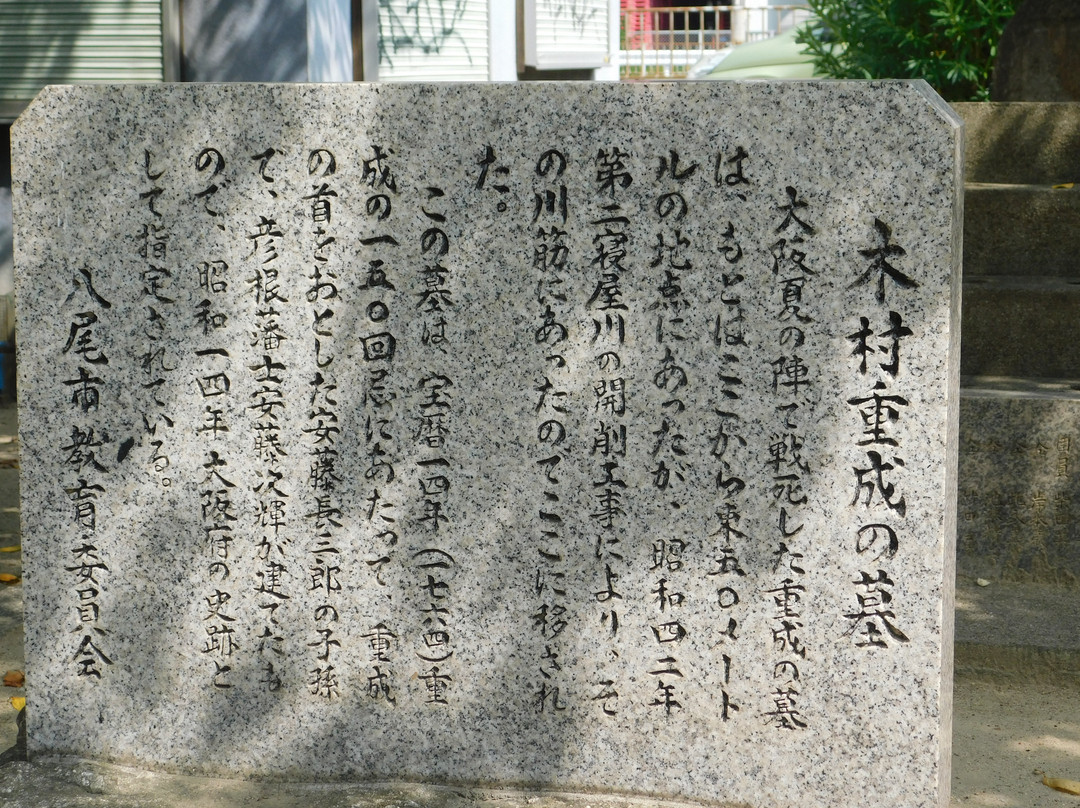 木村重成の墓
大阪夏の陣で戦死した重成の墓
は、もとはここから東五〇メート
ルの地点にあったが、昭和四二年
第二寝屋川の開削工事により、そ
の川筋にあったのでここに移され
た。
この墓は、宝暦一四年(一七六四)重
成の一五〇回忌にあたって、重成
の首をおとした安藤長三郎の子孫
で、彦根藩士安藤次輝が建てたも
ので、昭和一四年大阪府の史跡と
して指定されている。
八尾市教育委員会